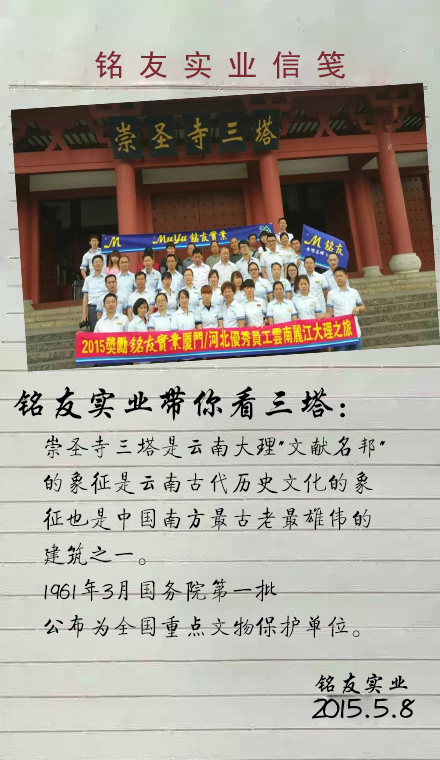 铭友实业信笺
崇圣寺三塔
M MuYu 铭友實業
M 铭友
2015獎勵铭友實業厦門/河北優秀員工雲南麗江大理之旅
铭友实业带你看三塔：
崇圣寺三塔是云南大理"文献名邦"
的象征是云南古代历史文化的象
征也是中国南方最古老最雄伟的
建筑之一。
1961年3月国务院第一批
公布为全国重点文物保护单位。
铭友实业
2015.5.8